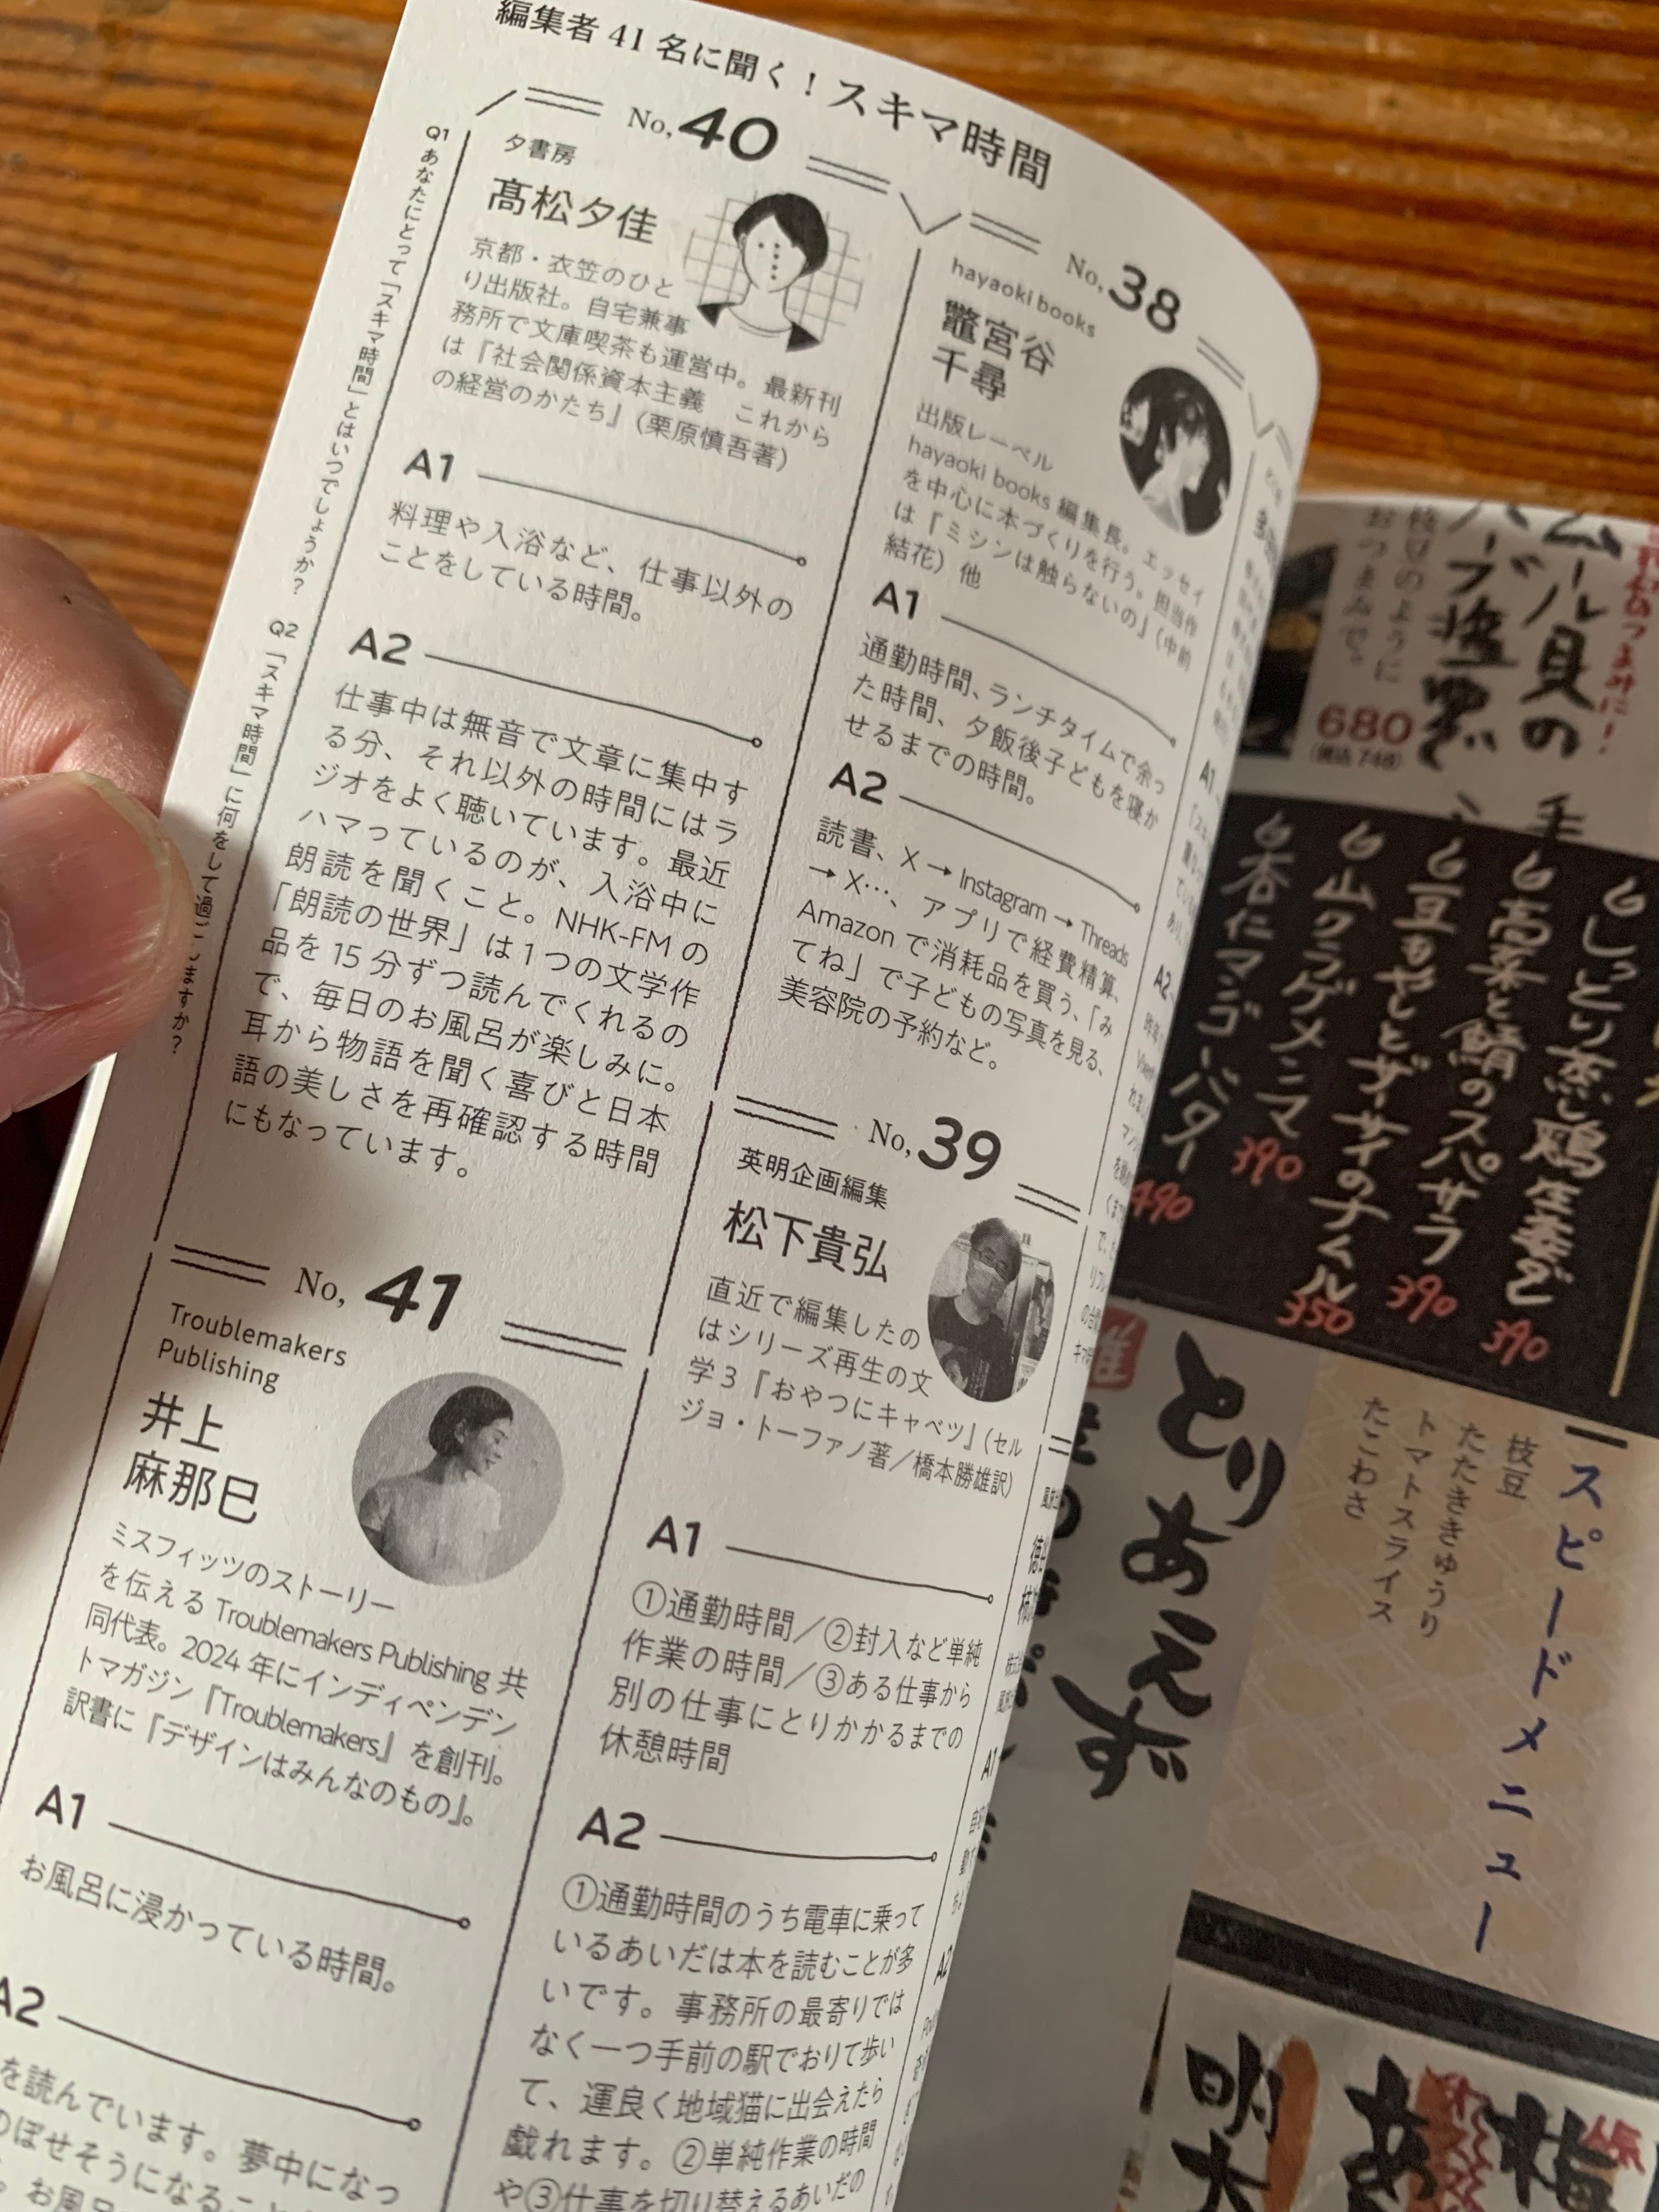 編集者 41 名に聞く！スキマ時間
Q1 あなたにとって「スキマ時間」とはいつでしょうか？
Q2 「スキマ時間」に何をして過ごしますか？
No, 40
夕書房
髙松夕佳
京都・衣笠のひと
り出版社。自宅兼事
務所で文庫喫茶も運営中。最新刊
は『社会関係資本主義　これから
の経営のかたち』（栗原慎吾著）
A1
料理や入浴など、仕事以外の
ことをしている時間。
A2
仕事中は無音で文章に集中す
る分、それ以外の時間にはラ
ジオをよく聴いています。最近
ハマっているのが、入浴中に
朗読を聞くこと。NHK-FM の
「朗読の世界」は 1 つの文学作
品を 15 分ずつ読んでくれるの
で、毎日のお風呂が楽しみに。
耳から物語を聞く喜びと日本
語の美しさを再確認する時間
にもなっています。
No, 41
Troublemakers
Publishing
井上
麻那巳
ミスフィッツのストーリー
を伝える Troublemakers Publishing 共
同代表。2024 年にインディペンデン
トマガジン『Troublemakers』を創刊。
訳書に『デザインはみんなのもの』。
A1
お風呂に浸かっている時間。
A2
を読んでいます。夢中になっ
のぼせそうになること
。お風呂
No, 38
hayaoki books
鼈宮谷
千尋
出版レーベル
hayaoki books 編集長。エッセイ
を中心に本づくりを行う。担当作
は『ミシンは触らないの』（中前
結花）他
A1
通勤時間、ランチタイムで余っ
た時間、夕飯後子どもを寝か
せるまでの時間。
A2
読書、X → Instagram → Threads
→ X…、アプリで経費精算、
Amazon で消耗品を買う、「み
てね」で子どもの写真を見る、
美容院の予約など。
No, 39
英明企画編集
松下貴弘
直近で編集したの
はシリーズ再生の文
学３『おやつにキャベツ』（セル
ジョ・トーファノ著／橋本勝雄訳）
A1
①通勤時間／②封入など単純
作業の時間／③ある仕事から
別の仕事にとりかかるまでの
休憩時間
A2
①通勤時間のうち電車に乗って
いるあいだは本を読むことが多
いです。事務所の最寄りでは
なく一つ手前の駅でおりて歩い
て、運良く地域猫に出会えたら
戯れます。②単純作業の時間
や③仕事を切り替えるあいだの
A1
A2
A1
A2
ムール貝の
ハーブ塩蒸し
枝豆のように
おつまみで。
680
（税込 748）
しっとり蒸し鶏生姜だれ
390
高菜と鯖のスパサラ
390
豆もやしとザーサイのナムル
350
山クラゲメンマ
390
杏仁マンゴーバター
490
とりあえず
スピードメニュー
枝豆
たたききゅうり
トマトスライス
たこわさ